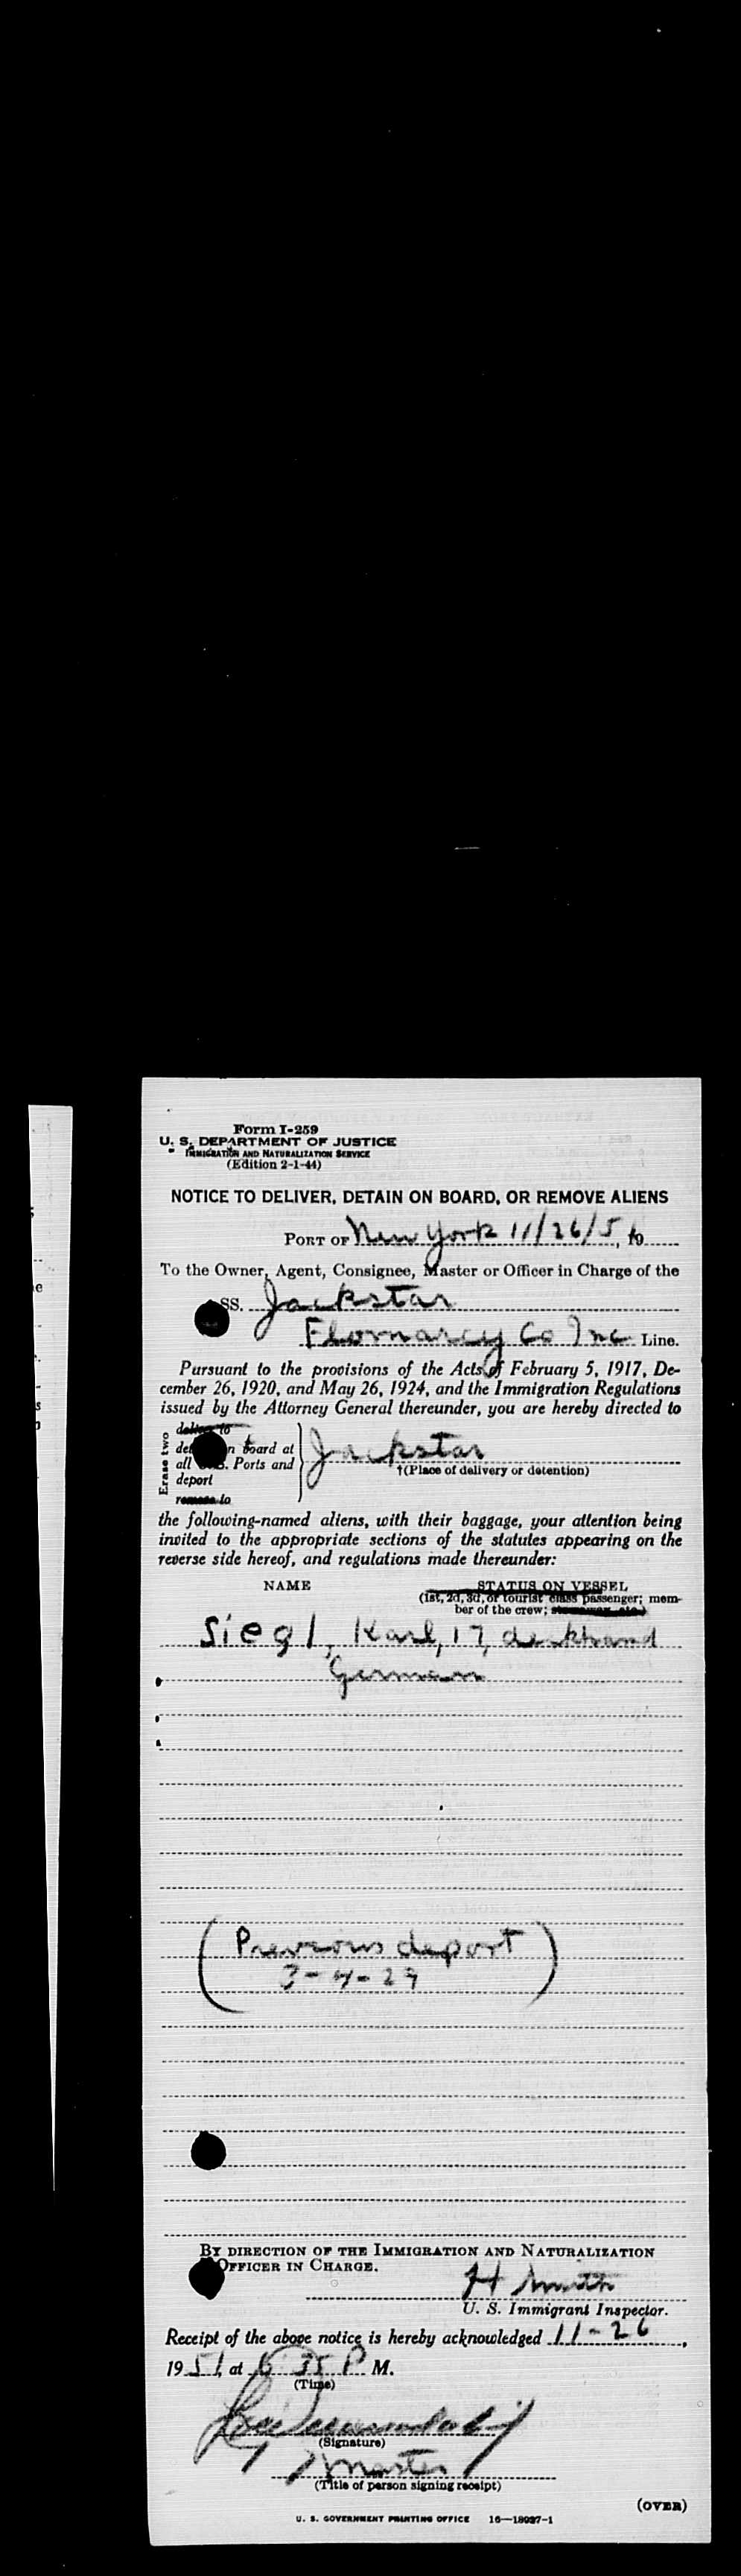 Form I-259
U. S. DEPARTMENT OF JUSTICE
IMMIGRATION AND NATURALIZATION SERVICE
(Edition 2-1-44)
NOTICE TO DELIVER, DETAIN ON BOARD, OR REMOVE ALIENS
PORT OF New York 11/26/51, 19
To the Owner, Agent, Consignee, Master or Officer in Charge of the
SS. Jackstar
Co Inc Line.
Pursuant to the provisions of the Acts of February 5, 1917, De-
cember 26, 1920, and May 26, 1924, and the Immigration Regulations
issued by the Attorney General thereunder, you are hereby directed to
Erase two
deliver to
board at
all Ports and
deport
remove to
Jackstar
†(Place of delivery or detention)
the following-named aliens, with their baggage, your attention being
invited to the appropriate sections of the statutes appearing on the
reverse side hereof, and regulations made thereunder:
NAME STATUS ON VESSEL
(1st, 2d, 3d, or tourist class passenger; mem-
ber of the crew; stowaway, etc.)
Siegl, Karl, 17, deckhand
German
(Previous deport
3-4-29)
BY DIRECTION OF THE IMMIGRATION AND NATURALIZATION
OFFICER IN CHARGE.
H Smith
U. S. Immigrant Inspector.
Receipt of the above notice is hereby acknowledged 11-26,
1951, at 6 35 P M.
(Time)
(Signature)
Master
(Title of person signing receipt)
(OVER)
U. S. GOVERNMENT PRINTING OFFICE 16—18027-1